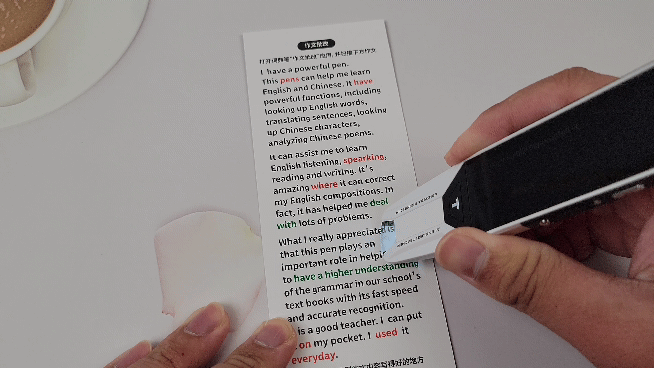 作文批改
I have a powerful pen.
This pens can help me learn
English and Chinese. It have
powerful functions, including
looking up English words,
translating sentences, looking
up Chinese characters,
analyzing Chinese poems.
It can assist me to learn
English listening, spearking,
reading and writing. It's
amazing where it can correct
my English compositions. In
fact, it has helped me deal
with lots of problems.
What I really appreciate is
that this pen plays an
important role in helpi
to have a higher understanding
of the grammar in our school's
text books with its fast speed
and accurate recognition.
is a good teacher. I can put
on my pocket. I used it
everyday.